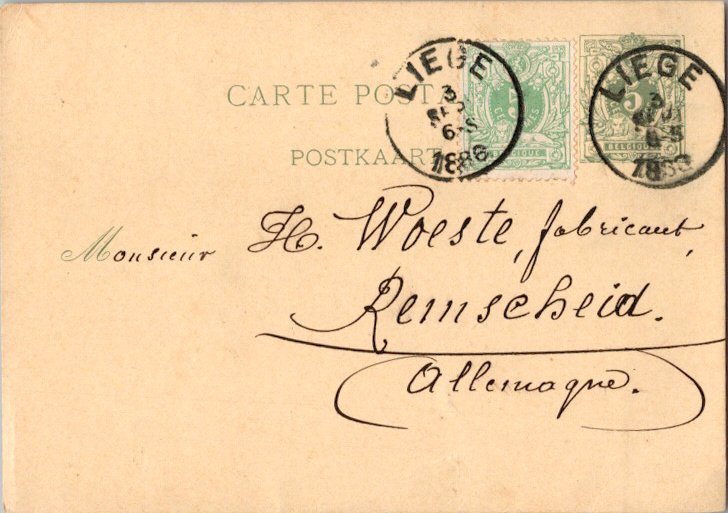 CARTE POSTA
POSTKAART
LIEGE
3
6-S
1886
5
BELGIQUE
LIEGE
3
1886
5
BELGIQUE
Monsieur H. Woeste, fabricant,
Remscheid.
Allemagne.